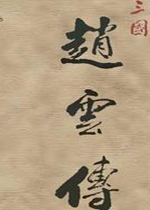 三國
趙雲傳